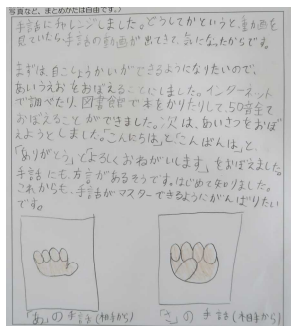 写真など、まとめかたは自由です。）
手話にチャレンジしました。どうしてかというと、動画を
見ていたら手話の動画が出てきて、気になったからです。
まずは、自こしょうかいができるようになりたいので、
あいうえおをおぼえることにしました。インターネット
で調べたり、図書館で本をかりたりして、50音全て
おぼえることができました。次は、あいさつをおぼ
えようとしました。「こんにちは」と、「こんばんは」と、
「ありがとう」と「よろしくおねがいします」をおぼえました。
手話にも、方言があるそうです。はじめて知りました。
これからも、手話がマスターできるようにがんばりたい
です。
「あ」の手話(相手から)
「さ」の手話(相手から)